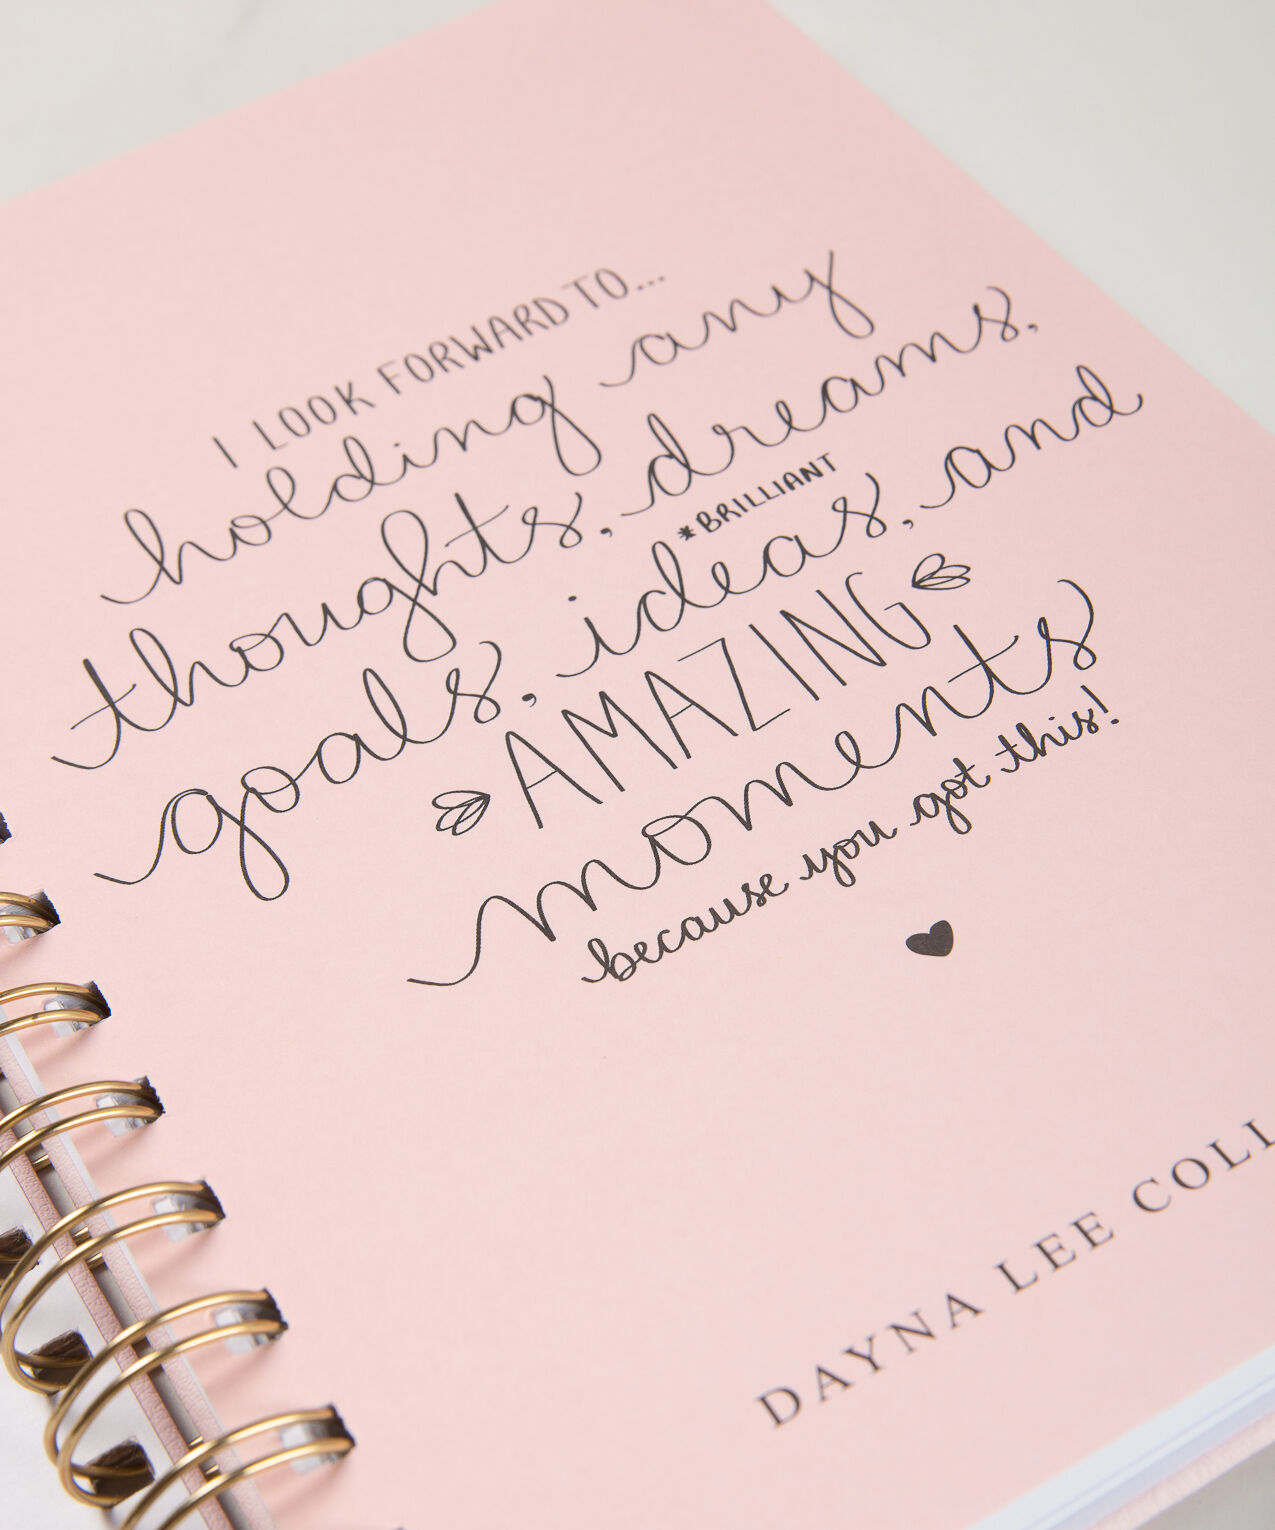 I LOOK FORWARD TO...
holding any
thoughts, dreams,
*BRILLIANT
goals, ideas, and
AMAZING
moments
because you got this!
DAYNA LEE COLL